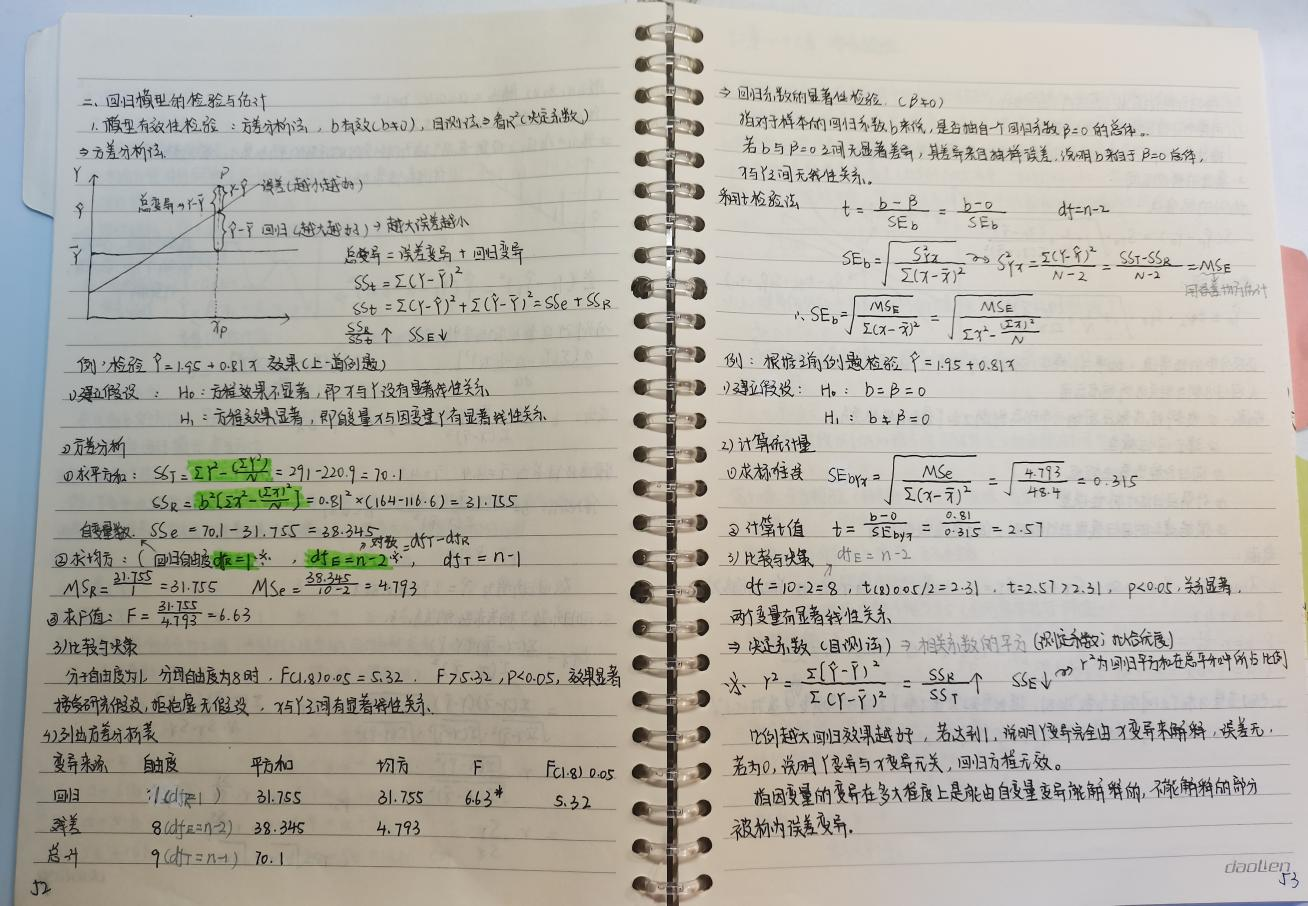 二、回归模型的检验与估计
1. 模型有效性检验:方差分析法,b有效(b≠0),目测法⇒看R²(决定系数)
⇒方差分析法
Y
P
Y-Ŷ 误差(越小越好)
总变异→Y-Ȳ
Ŷ
Ŷ-Ȳ 回归(越大越好)→越大误差越小
Ȳ
总变异 = 误差变异 + 回归变异
SSt = Σ(Y-Ȳ)²
SSt = Σ(Y-Ŷ)² + Σ(Ŷ-Ȳ)² = SSe + SSR
Xp
SSR/SSt ↑ SSE↓
例:检验 Ŷ=1.95+0.81X 效果(上一道例题)
1)建立假设: H₀:方程效果不显著,即X与Y没有显著线性关系
H₁:方程效果显著,即自变量X与因变量Y有显著线性关系
2)方差分析
①求平方和: SST = ΣY² - (ΣY)²/N = 291-220.9 = 70.1
SSR = b²[Σx² - (Σx)²/N] = 0.81²×(164-116.6) = 31.755
自变量数 SSe = 70.1-31.755 = 38.345
对数 =dfT-dfR
②求均方:( 回归自由度dfR=1※, dfE=n-2※, dfT=n-1
MSR = 31.755/1 = 31.755 MSe = 38.345/10-2 = 4.793
③求F值: F = 31.755/4.793 = 6.63
3)比较与决策
分子自由度为1,分母自由度为8时,F(1.8)0.05=5.32. F>5.32, P<0.05, 效果显著
接受研究假设,拒绝虚无假设,x与Y之间有显著线性关系
4)列出方差分析表
变异来源 自由度 平方和 均方 F F(1.8) 0.05
回归 1(dfR=1) 31.755 31.755 6.63* 5.32
残差 8(dfE=n-2) 38.345 4.793
总计 9(dfT=n-1) 70.1
52
⇒ 回归系数的显著性检验 (β≠0)
指对于样本的回归系数b来说,是否抽自一个回归系数β=0的总体。
若b与β=0之间无显著差异,其差异来自抽样误差,说明b来自于β=0总体,
X与Y之间无线性关系。
利用t检验法 t = b-β/SEb = b-0/SEb df=n-2
SEb = √S²YX/Σ(x-x̄)² → S²YX = Σ(Y-Ŷ)²/N-2 = SST-SSR/N-2 = MSE
用误差均方估计
∴SEb = √MSE/Σ(x-x̄)² = √MSE/Σx²-(Σx)²/N
例:根据之前例题检验 Ŷ=1.95+0.81x
1)建立假设: H₀: b=β=0
H₁: b≠β=0
2)计算统计量
①求标准误 SEbYX = √MSe/Σ(x-x̄)² = √4.793/48.4 = 0.315
②计算t值 t = b-0/SEbYX = 0.81/0.315 = 2.57
3)比较与决策 dfE=n-2
df=10-2=8, t(8)0.05/2=2.31, t=2.57>2.31, p<0.05, 关系显著,
两个变量有显著线性关系
⇒ 决定系数(目测法)→相关系数的平方(测定系数;拟合优度)
※ r² = Σ(Ŷ-Ȳ)²/Σ(Y-Ȳ)² = SSR/SST ↑ SSE↓ → r²为回归平方和在总平方和中所占比例
比例越大回归效果越好,若达到1,说明Y变异完全由X变异来解释,误差无,
若为0,说明Y变异与X变异无关,回归方程无效。
指因变量的变异在多大程度上是能由自变量变异能解释的,不能解释的部分
被称为误差变异。
daolien
53